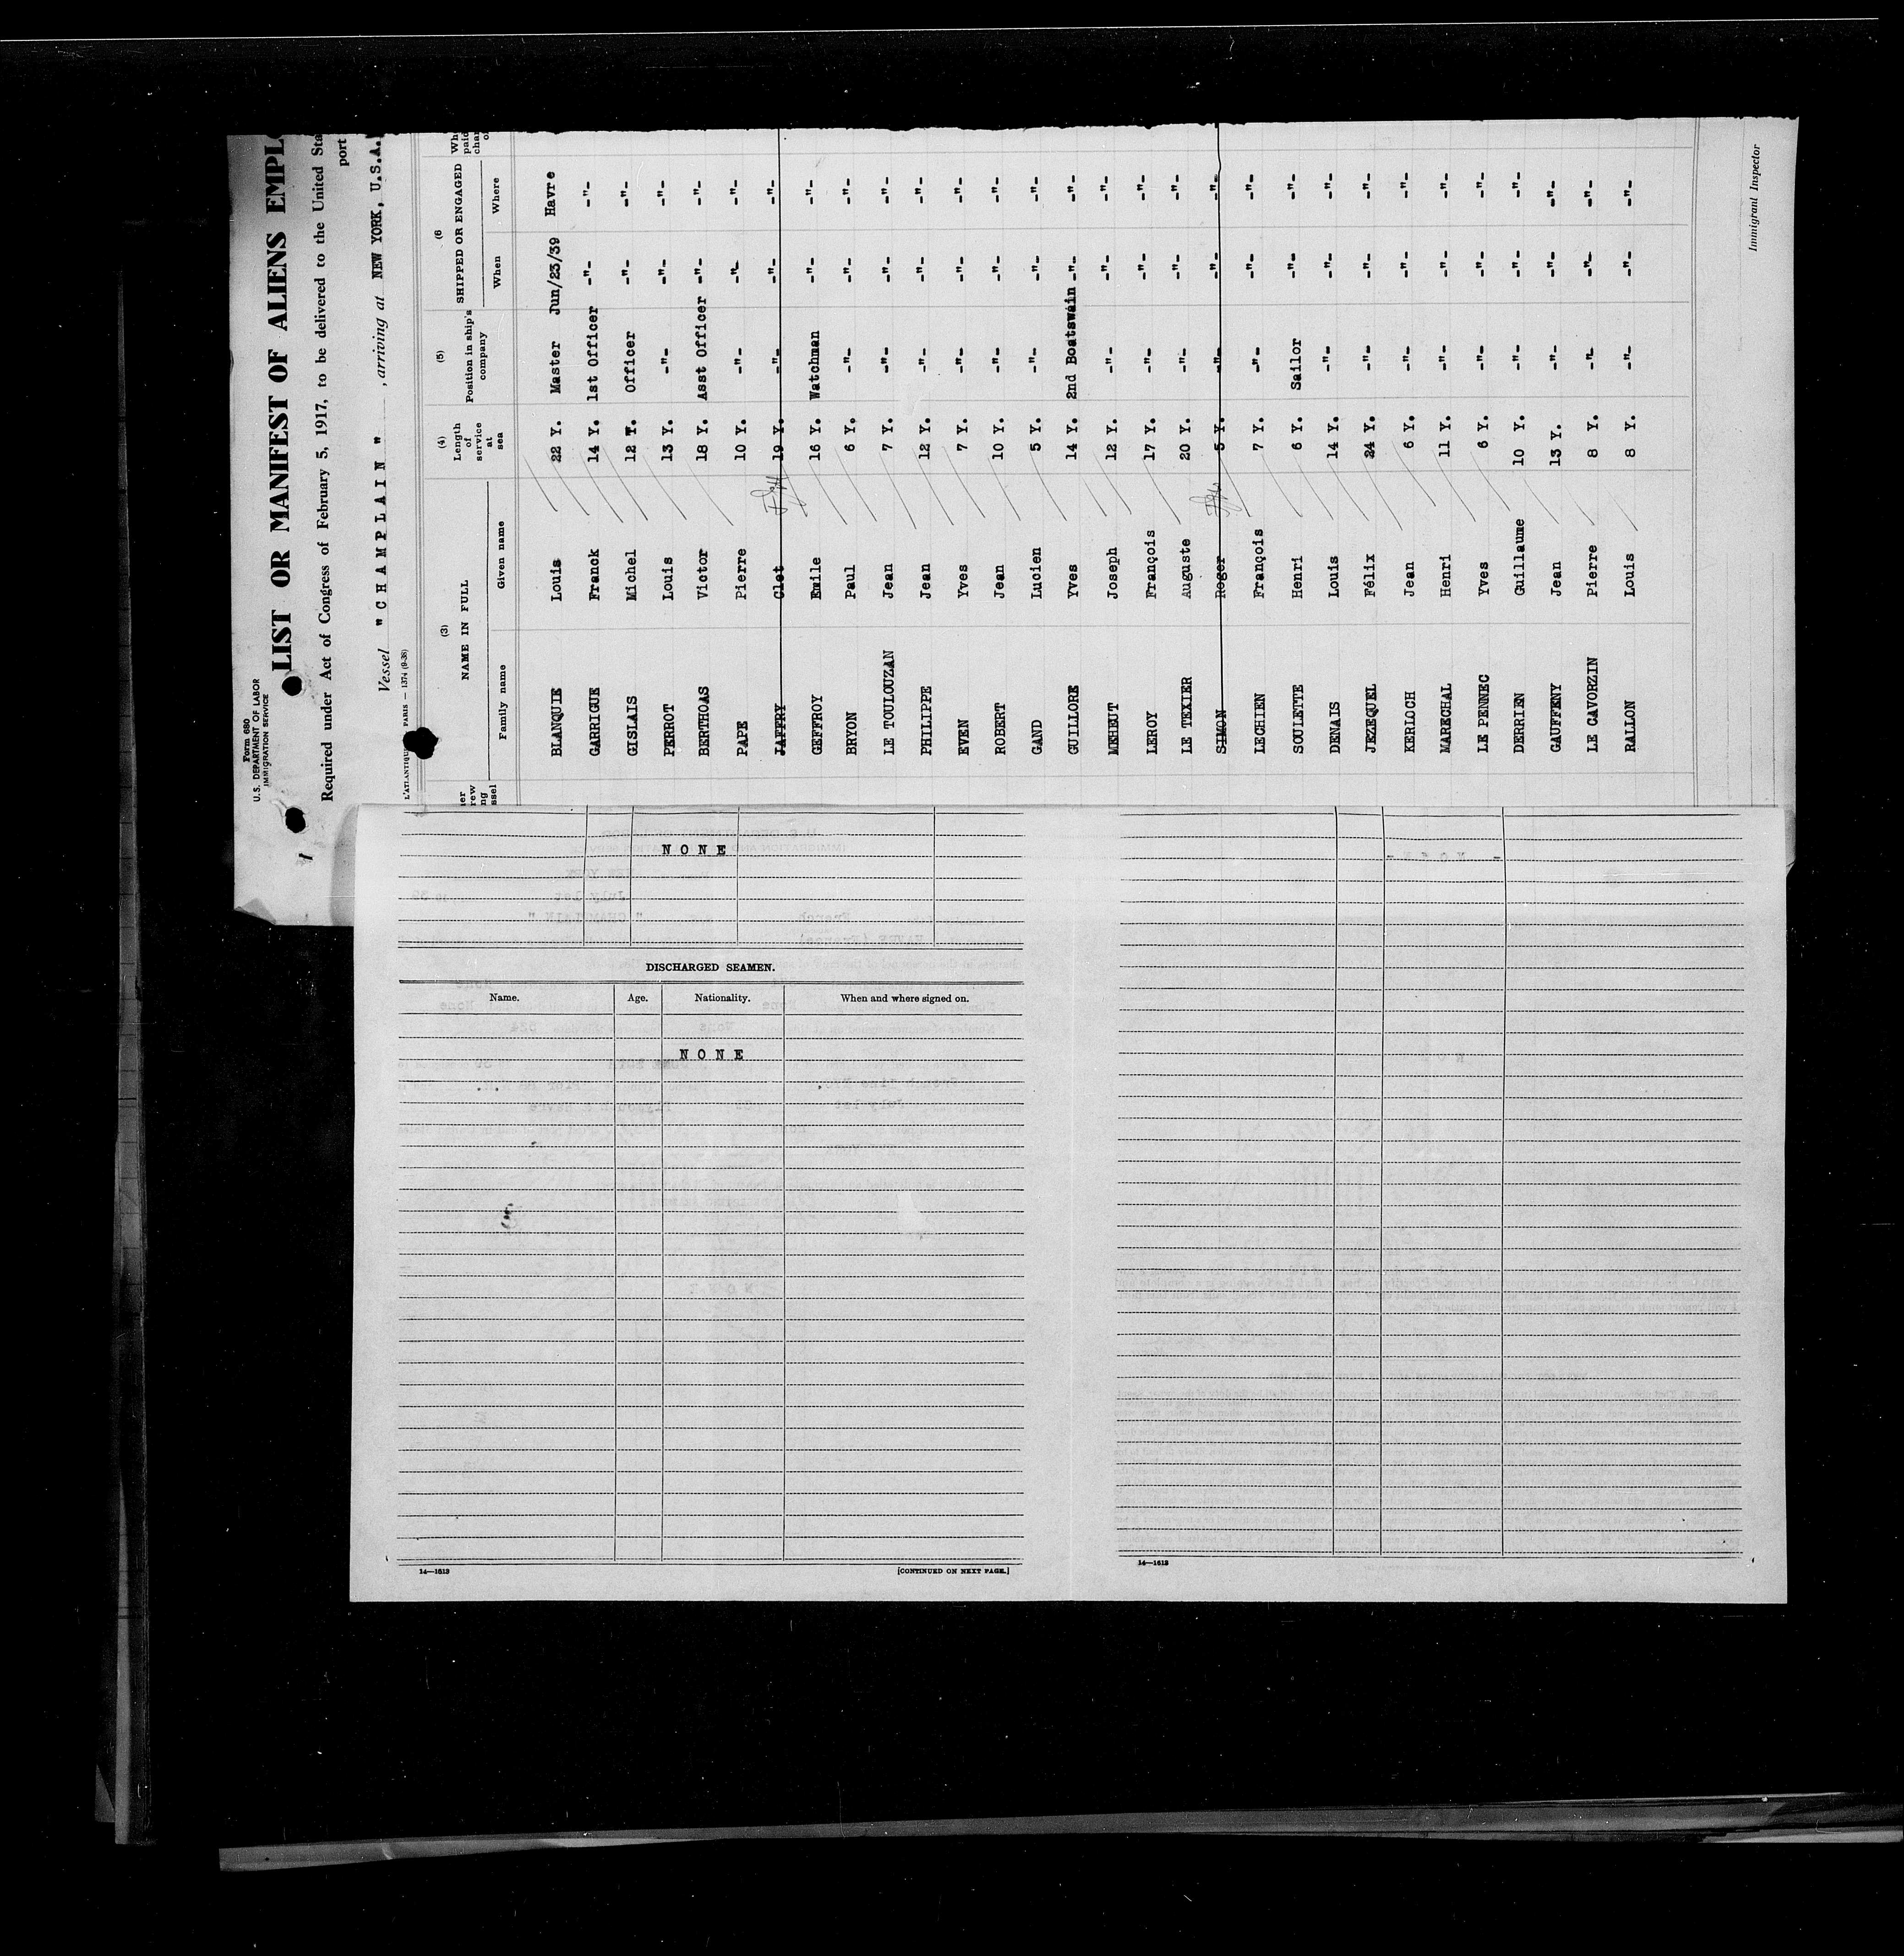 Form 680
U.S. DEPARTMENT OF LABOR
IMMIGRATION SERVICE
LIST OR MANIFEST OF ALIENS
Required under Act of Congress of February 5, 1917, to be delivered to the United
port
Vessel " C H A M P L A I N " , arriving at NEW YORK, U.S.A.
PARIS — 1374 (9-38)
(3) NAME IN FULL (4) Length of service at sea (5) Position in ship's company (6 SHIPPED OR ENGAGED
Family name Given name When Where
BLANQUIE Louis 22 Y. Master Jun/23/39 Havre
GARRIGUE Franck 14 Y. 1st Officer -"- -"-
GISLAIS Michel 12 Y. Officer -"- -"-
PERROT Louis 13 Y. -"- -"- -"-
BERTHOAS Victor 18 Y. Asst Officer -"- -"-
PAPE Pierre 10 Y. -"- -"- -"-
JAFFRY Clet 19 Y. -"- -"- -"-
GEFFROY Emile 16 Y. Watchman -"- -"-
BRYON Paul 6 Y. -"- -"- -"-
LE TOULOUZAN Jean 7 Y. -"- -"- -"-
PHILIPPE Jean 12 Y. -"- -"- -"-
EVEN Yves 7 Y. -"- -"- -"-
ROBERT Jean 10 Y. -"- -"- -"-
GAND Lucien 5 Y. -"- -"- -"-
GUILLORE Yves 14 Y. 2nd Boatswain -"- -"-
MEHEUT Joseph 12 Y. -"- -"- -"-
LEROY François 17 Y. -"- -"- -"-
LE TEXIER Auguste 20 Y. -"- -"- -"-
SIMON Roger 5 Y. -"- -"- -"-
LECHIEN François 7 Y. -"- -"- -"-
SOULETTE Henri 6 Y. Sailor -"- -"-
DENAIS Louis 14 Y. -"- -"- -"-
JEZEQUEL Félix 24 Y. -"- -"- -"-
KERLOCH Jean 6 Y. -"- -"- -"-
MARECHAL Henri 11 Y. -"- -"- -"-
LE PENNEC Yves 6 Y. -"- -"- -"-
DERRIEN Guillaume 10 Y. -"- -"- -"-
GAUFFENY Jean 13 Y. -"- -"- -"-
LE CAVORZIN Pierre 8 Y. -"- -"- -"-
RALLON Louis 8 Y. -"- -"- -"-
Immigrant Inspector
N O N E
DISCHARGED SEAMEN.
Name. Age. Nationality. When and where signed on.
N O N E
14—1613 [CONTINUED ON NEXT PAGE.]
14—1613